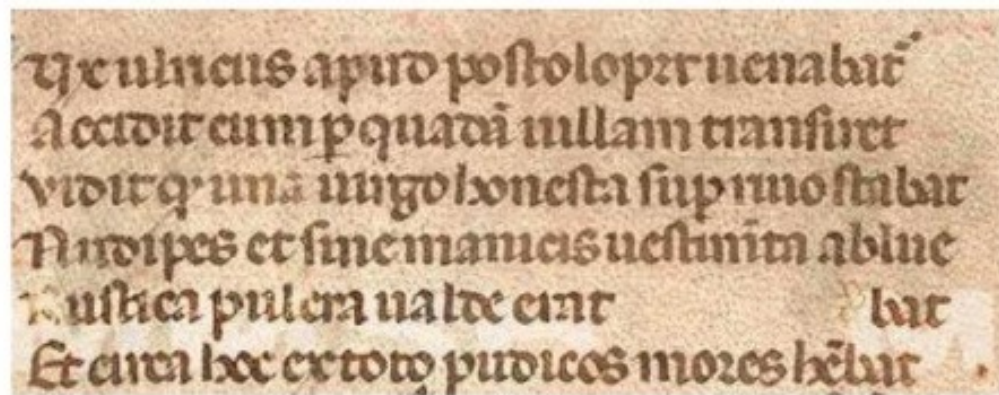 Dux ulricus apud postoloprt uenabat᷑
Accidit cum ꝑ quadā uillam transiret
Vidit qꝫ una uirgo honesta suꝑ riuo stabat
Nudipes et sine manicis uestim̄ta ablue
Rustica pulcra ualde erat bat
Et circa hoc ex toto pudicos mores hēbat